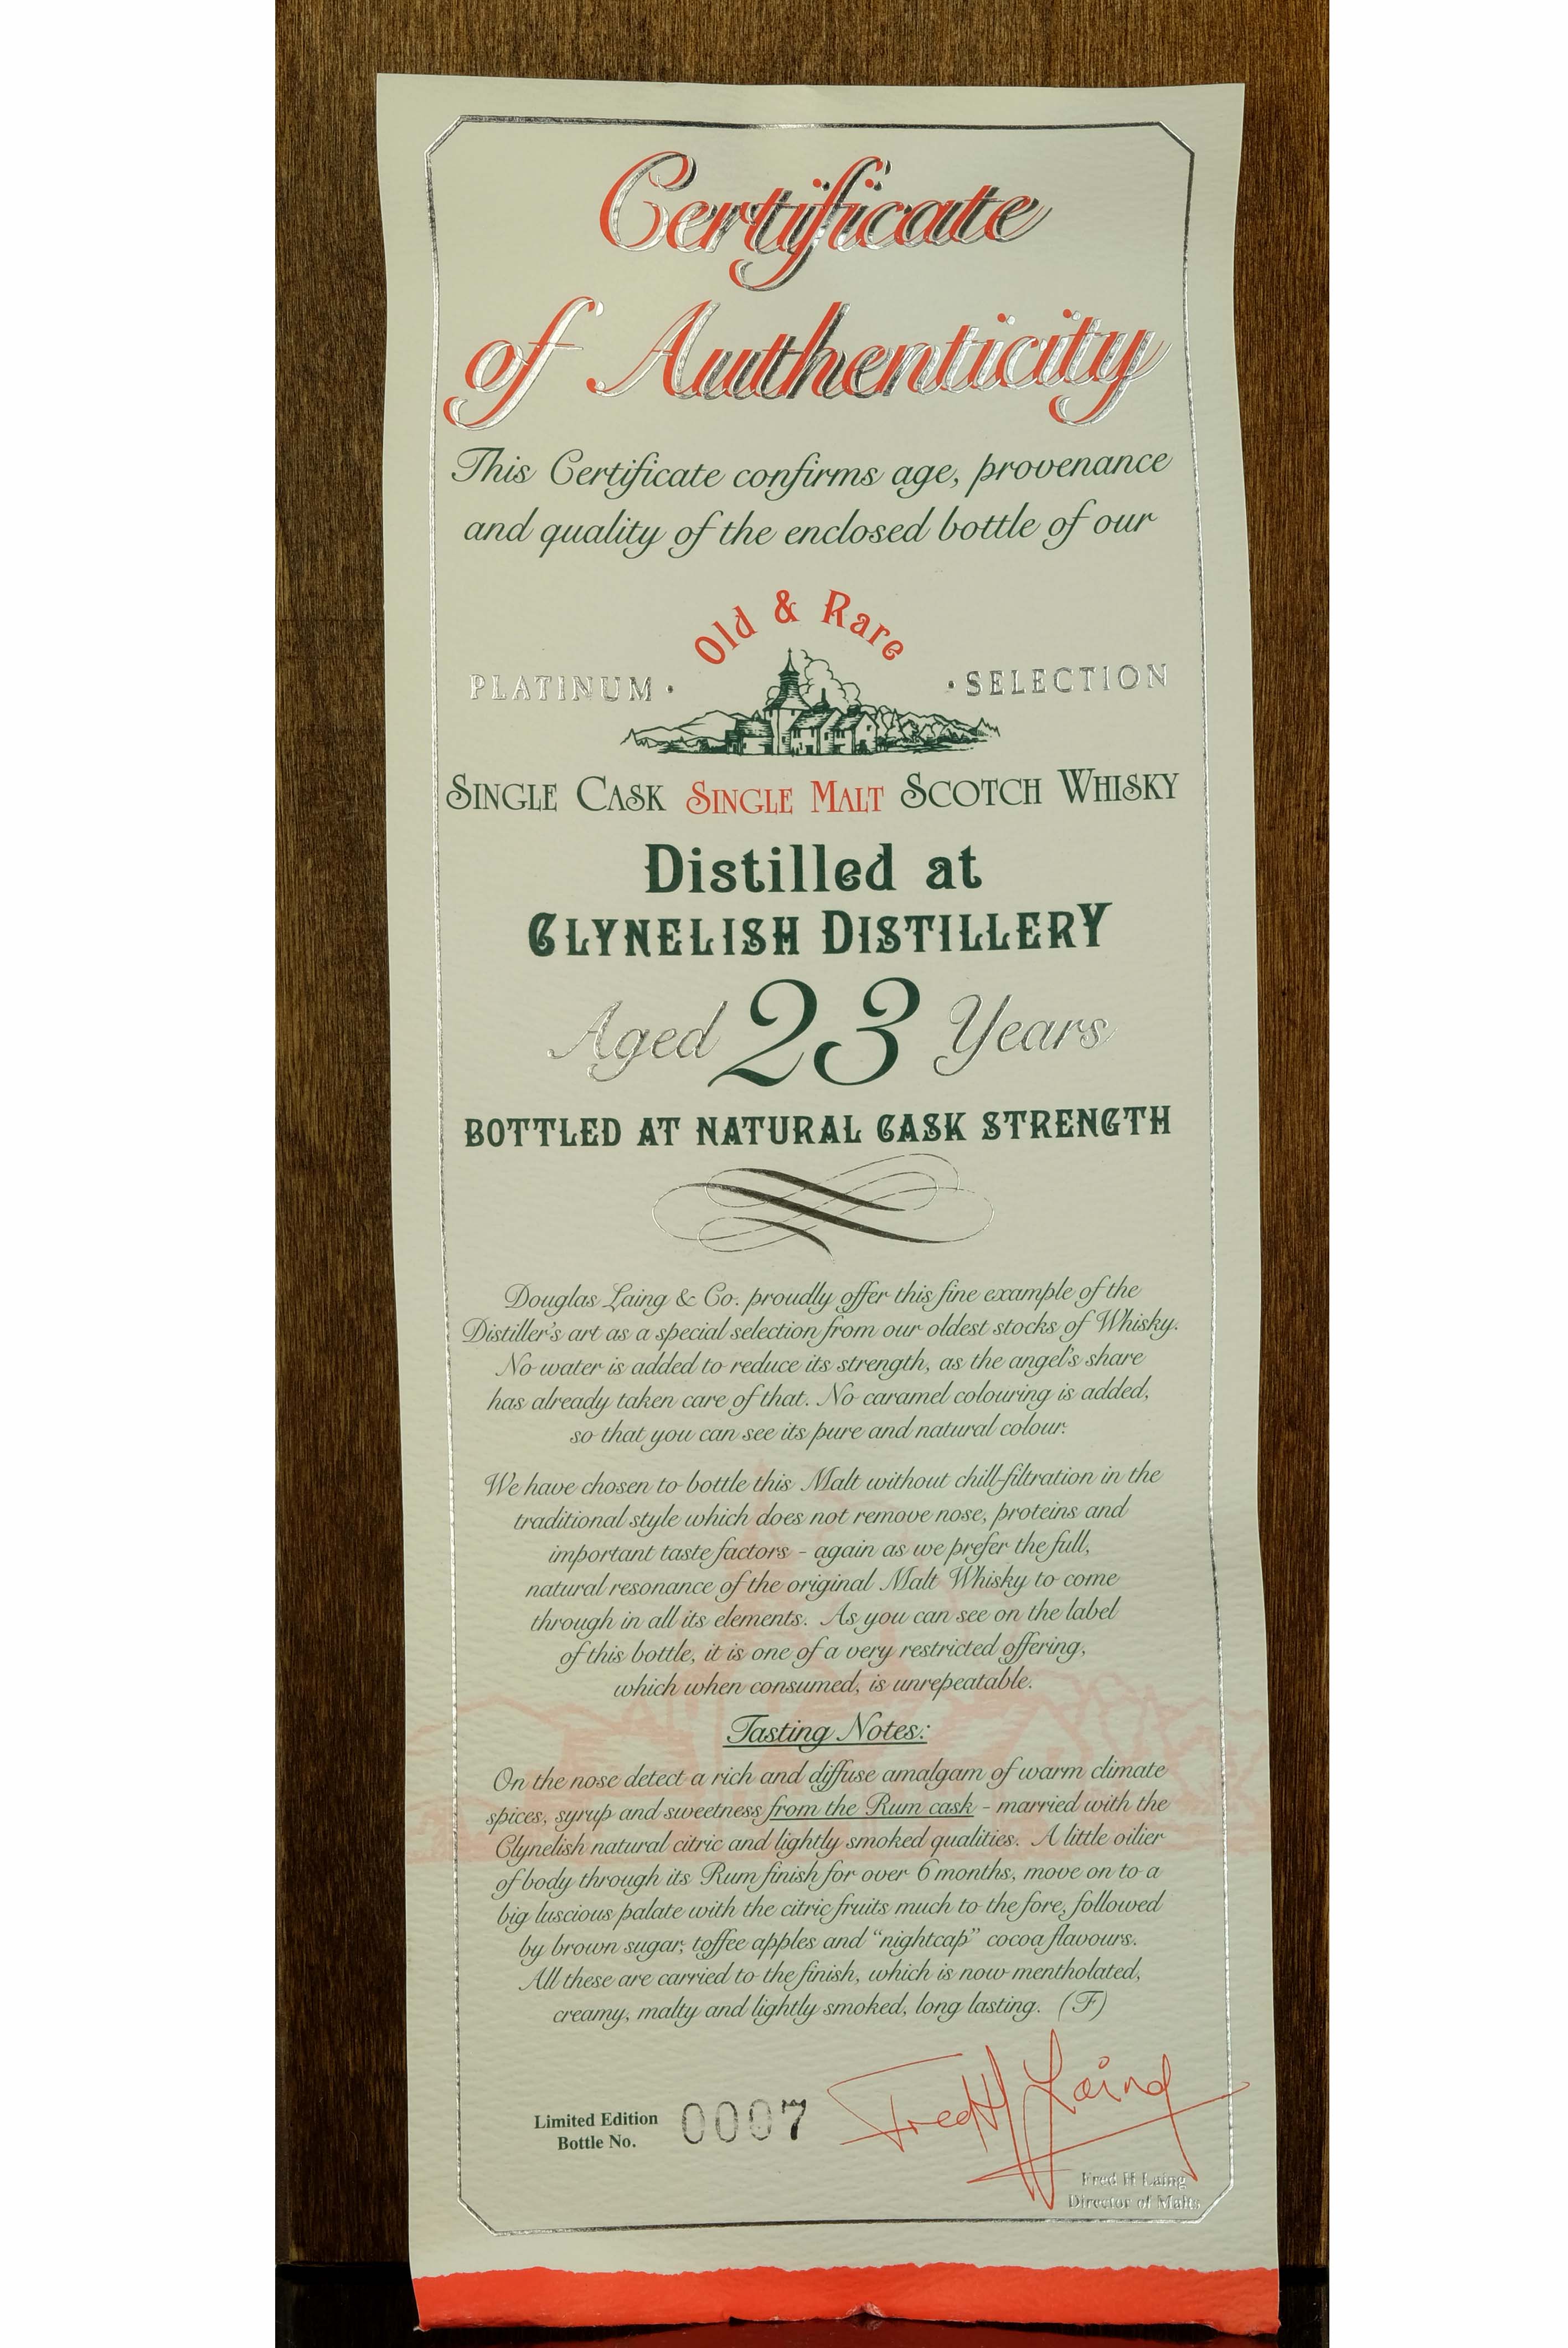 Certificate
of Authenticity
This Certificate confirms age, provenance
and quality of the enclosed bottle of our
Old & Rare
PLATINUM · · SELECTION
SINGLE CASK SINGLE MALT SCOTCH WHISKY
Distilled at
CLYNELISH DISTILLERY
Aged 23 Years
BOTTLED AT NATURAL CASK STRENGTH
Douglas Laing & Co. proudly offer this fine example of the
Distiller's art as a special selection from our oldest stocks of Whisky.
No water is added to reduce its strength, as the angel's share
has already taken care of that. No caramel colouring is added,
so that you can see its pure and natural colour.
We have chosen to bottle this Malt without chill-filtration in the
traditional style which does not remove nose, proteins and
important taste factors - again as we prefer the full,
natural resonance of the original Malt Whisky to come
through in all its elements. As you can see on the label
of this bottle, it is one of a very restricted offering,
which when consumed, is unrepeatable.
Tasting Notes:
On the nose detect a rich and diffuse amalgam of warm climate
spices, syrup and sweetness from the Rum cask - married with the
Clynelish natural citric and lightly smoked qualities. A little oilier
of body through its Rum finish for over 6 months, move on to a
big luscious palate with the citric fruits much to the fore, followed
by brown sugar, toffee apples and "nightcap" cocoa flavours.
All these are carried to the finish, which is now mentholated,
creamy, malty and lightly smoked, long lasting. (F)
Limited Edition
Bottle No. 0007
Fred H Laing
Fred H Laing
Director of Malts